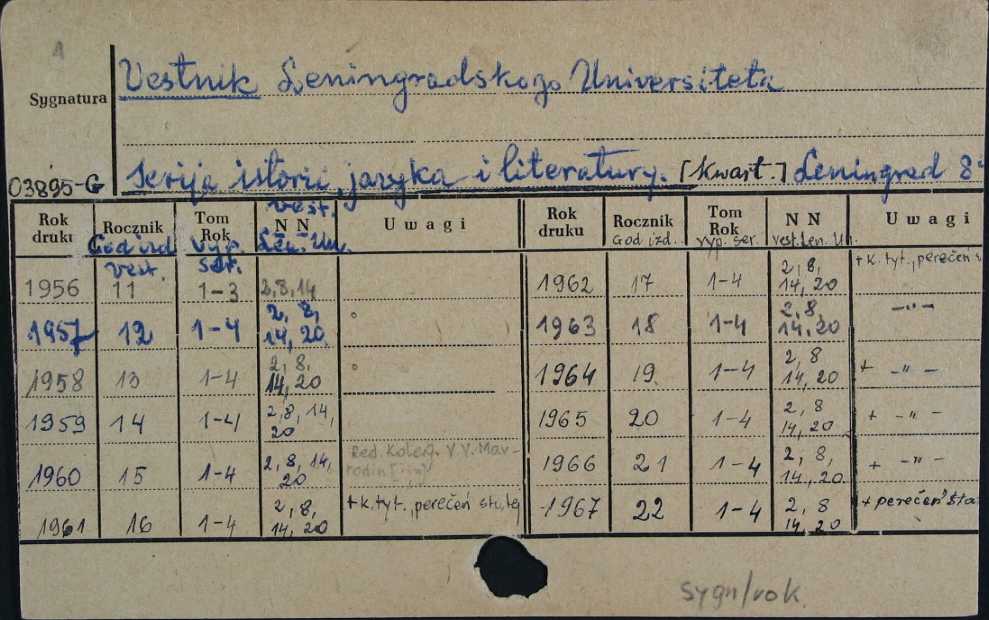 1
Vestnik Leningradskogo Universiteta
Sygnatura
03895-G Serija istorii, jazyka i literatury. [Kwart.] Leningrad 8°
Rok druku Rocznik God izd. vest. Tom Rok vyp. ser. N N Vest. Len. Un. Uwagi Rok druku Rocznik God izd. Tom Rok vyp. ser. N N Vest. Len. Un. Uwagi
1956 11 1-3 2, 8, 14 1962 17 1-4 2, 8, 14, 20 + K. tyt., perečeń
1957 12 1-4 2, 8, 14, 20 1963 18 1-4 2, 8, 14, 20 -"-
1958 13 1-4 2, 8, 14, 20 1964 19 1-4 2, 8 14, 20 + -"-
1959 14 1-4 2, 8, 14, 20 1965 20 1-4 2, 8 14, 20 + -"-
1960 15 1-4 2, 8, 14, 20 Red. Koleg. V. V. Mavrodin 1966 21 1-4 2, 8, 14, 20 + -"-
1961 16 1-4 2, 8, 14, 20 + k. tyt., perečeń 1967 22 1-4 2, 8 14, 20 + perečeń sta
sygn/rok.